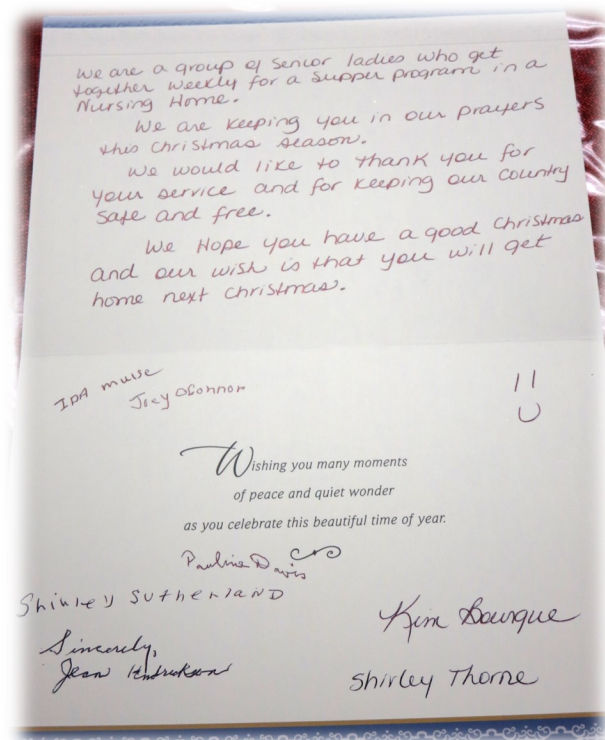 We are a group of Senior ladies who get
together weekly for a supper program in a
Nursing Home.
We are keeping you in our prayers
this Christmas season.
We would like to thank you for
your service and for keeping our country
safe and free.
We Hope you have a good Christmas
and our wish is that you will get
home next Christmas.
IDA
Joey OConnor
Wishing you many moments
of peace and quiet wonder
as you celebrate this beautiful time of year.
Pauline Davis
Shirley Sutherland
Kim Bourque
Sincerely,
Jean
Shirley Thorne